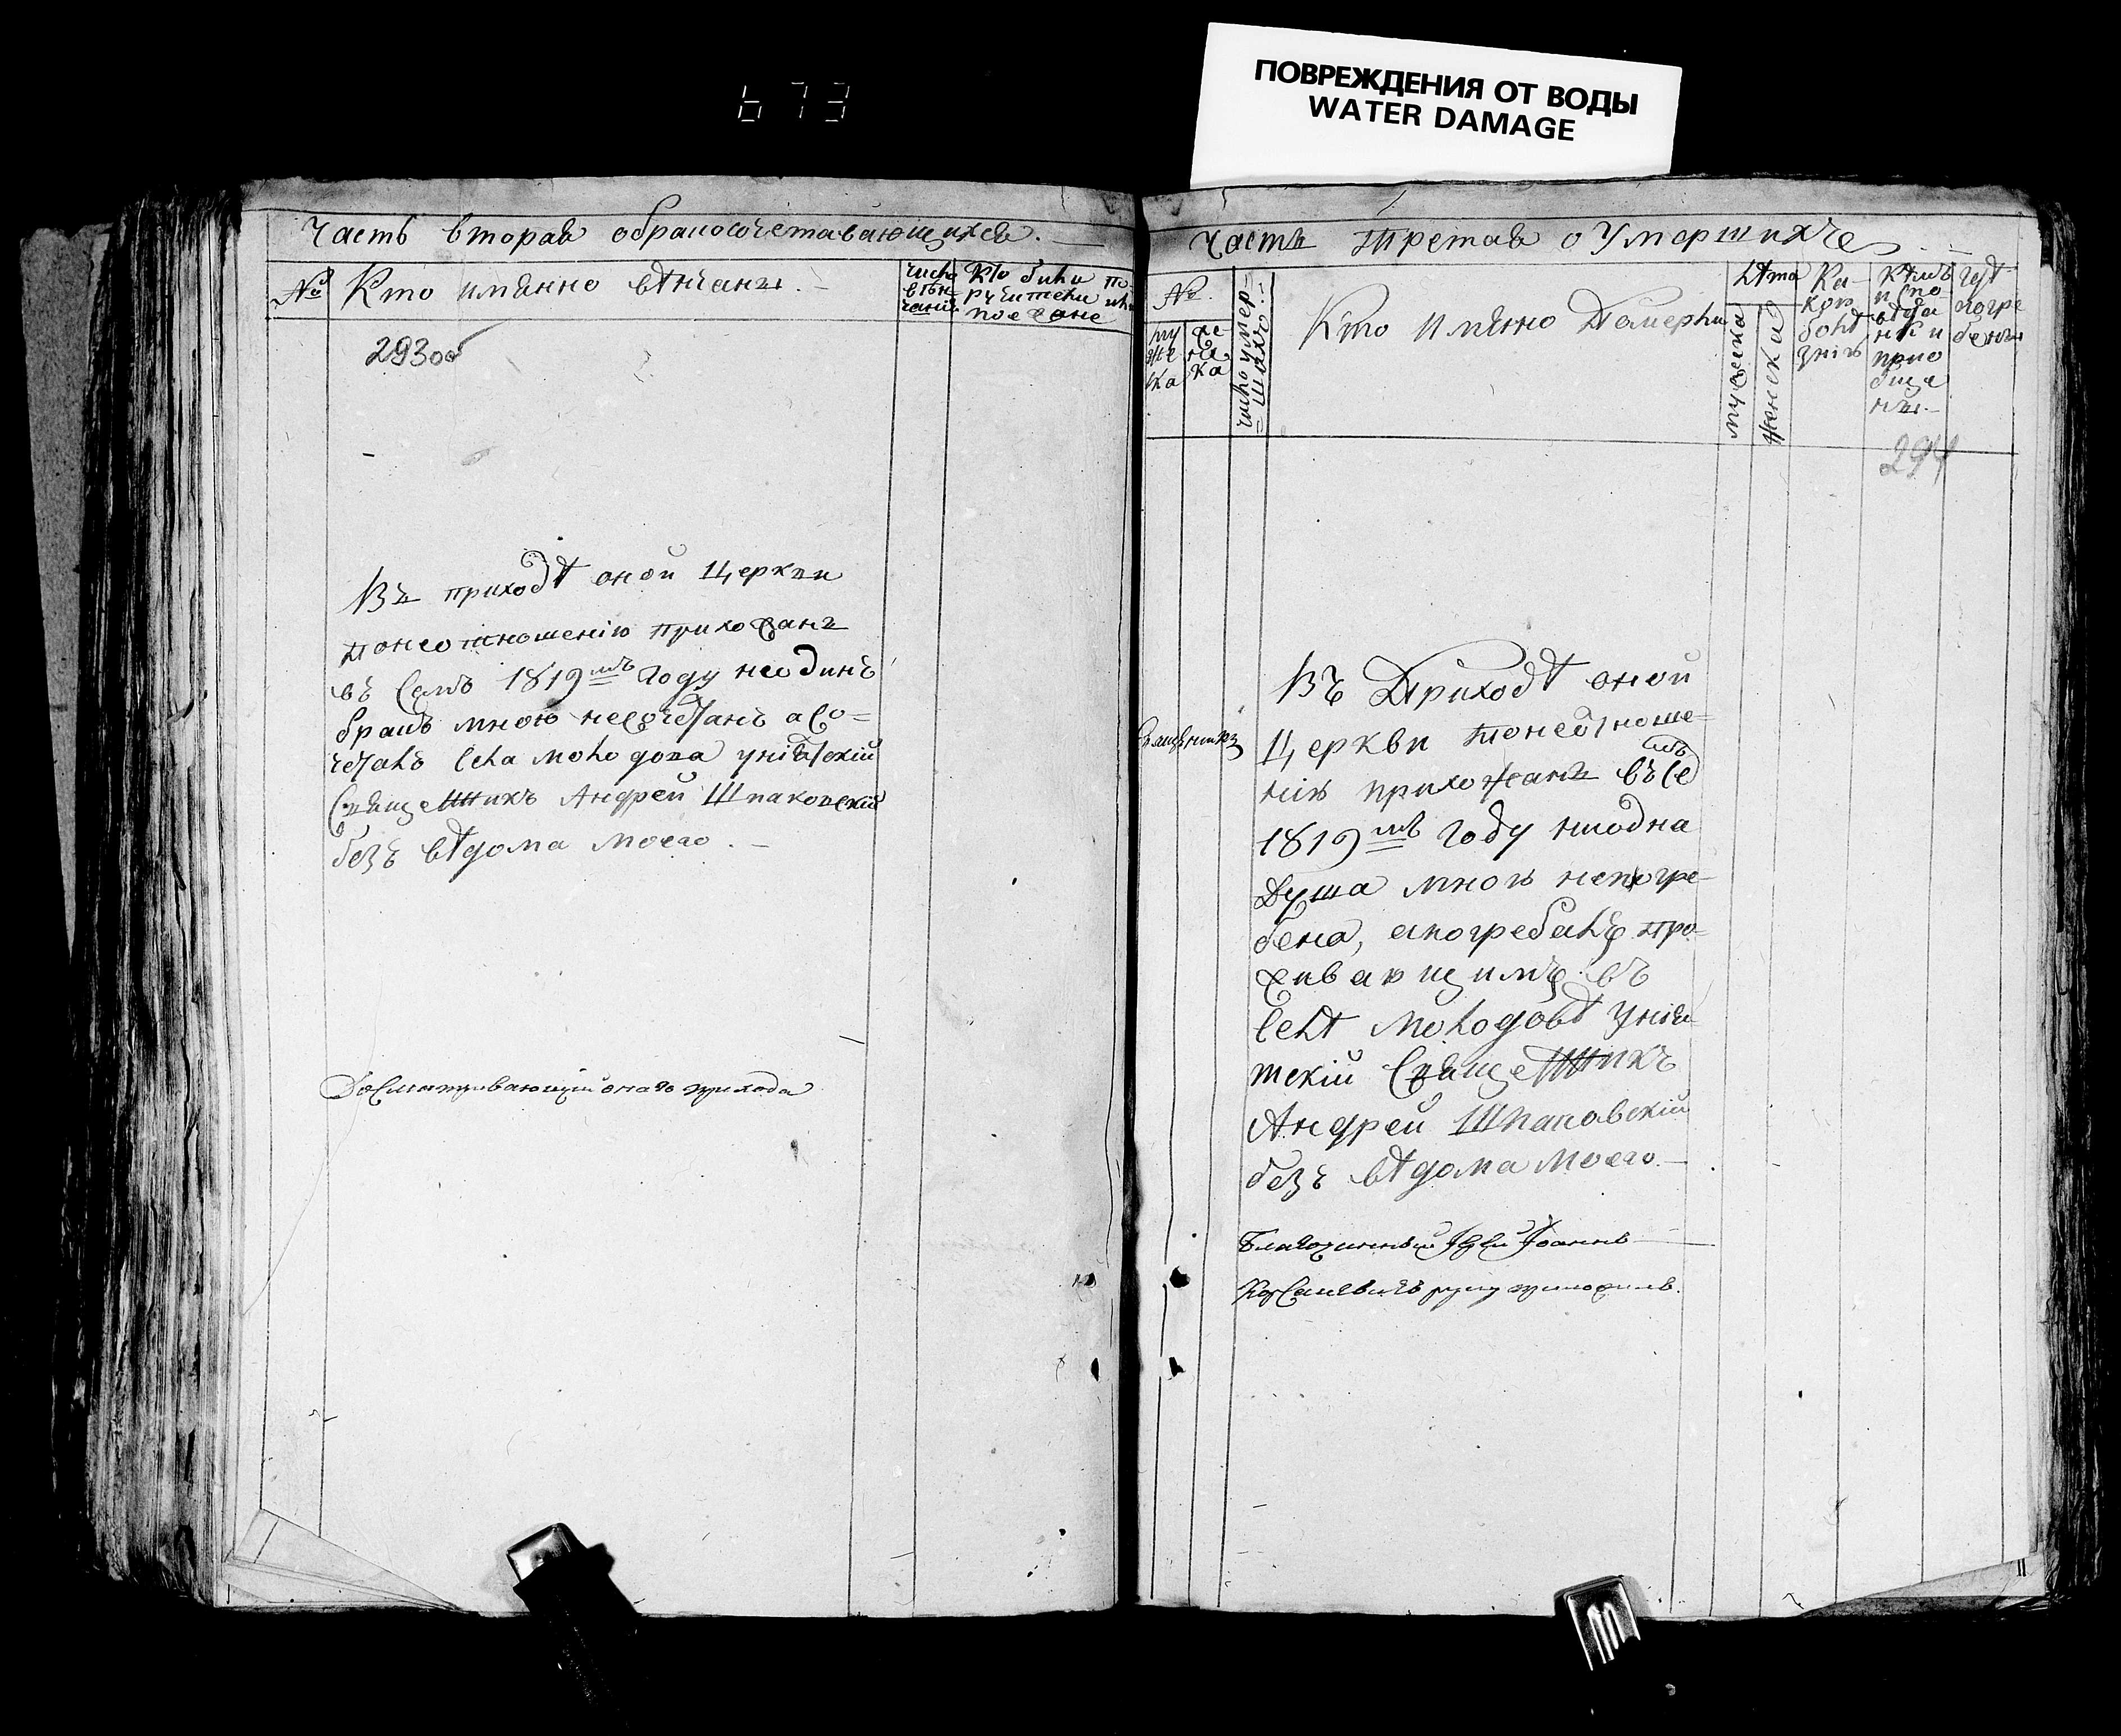 673
ПОВРЕЖДЕНИЯ ОТ ВОДЫ
WATER DAMAGE
Часть вторая обракосочетавающихся.
№
Кто имянно вѣнчаны.
число
вѣн-
чания
Кто были по-
ручители или
поезжане
293об
Въ приходѣ оной Церкви
понеотношенію прихожанъ
въ Семъ 1819мъ году неодинъ
бракъ мною несочетанъ а Со=
четалъ села Молодова уніатскій
Священникъ Андрей Шпаковскій
безъ вѣдома моего. –
Досматривающій онаго прихода
Часть третая оУмершихъ
№.
му
же
ска
же
нс
ка
число умер-
=шихъ.
Кто имянно Померли
Лѣта
мужеска
женска
Ка-
кою
болѣ
знію
Кѣмъ
испо
вѣда
ны и
прио
бща
ны.–
гдѣ
погре
бены
294
Священникъ
Въ Приходѣ оной
Церкви понеотноше-
нію прихожанъ въ Семъ
1819мъ году ниодна
Душа мною непогре-
бена, а погребалъ про-
живающимъ въ
Селѣ Молодовѣ Уніа-
тскій Священникъ
Андрей Шпаковскій
безъ вѣдома моего.–
Благочинный Іерей Іоаннъ
руку приложилъ.